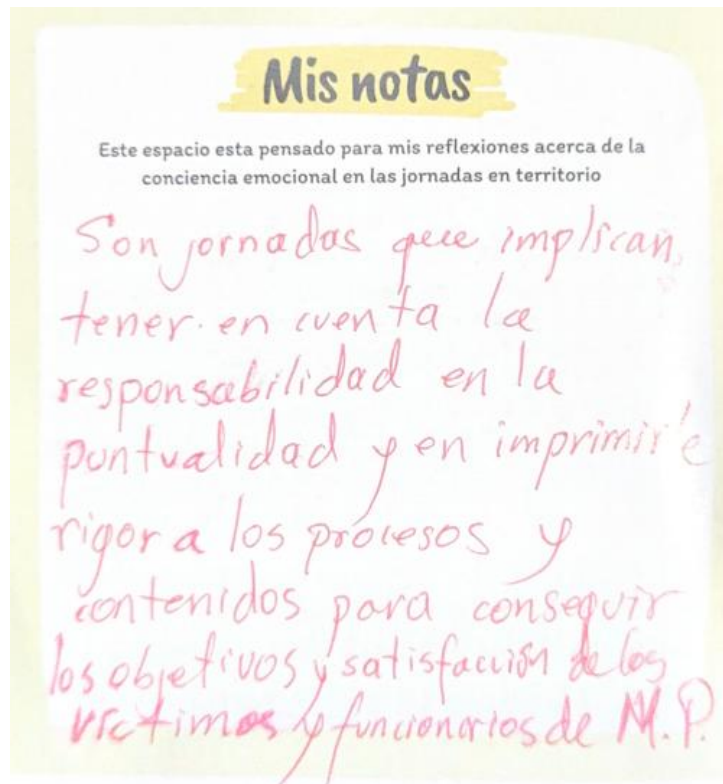 Mis notas
Este espacio esta pensado para mis reflexiones acerca de la
conciencia emocional en las jornadas en territorio
Son jornadas que implican
tener en cuenta la
responsabilidad en la
puntualidad y en imprimirle
rigor a los procesos y
contenidos para conseguir
los objetivos y satisfacción de los
víctimas y funcionarios de M.P.